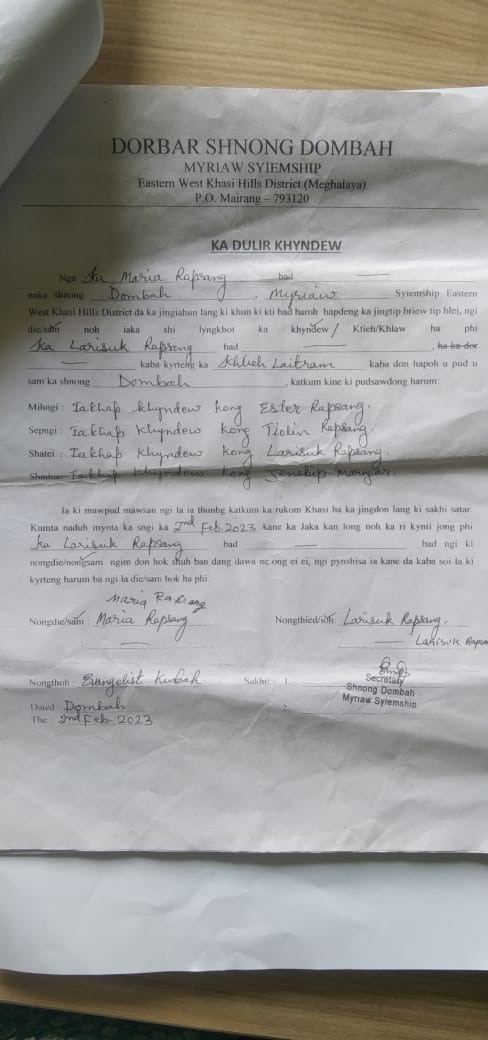 DORBAR SHNONG DOMBAH
MYRIAW SYIEMSHIP
Eastern West Khasi Hills District (Meghalaya)
P.O. Mairang – 793120
KA DULIR KHYNDEW
Nga Ka Maria Rapsang bad —
naka shnong Dombah , Myriaw Syiemship Eastern
West Khasi Hills District da ka jingiahun lang ki khun ki kti bad baroh hapdeng ka jingtip briew tip blei, ngi
die/sam noh iaka shi lyngkhot ka khyndew/ Ktieh/Khlaw ha phi
Ka Larisuk Rapsang bad — , ha ka dor
— kaba kyrteng ka Khlieh Laitram kaba don hapoh u pud u
sam ka shnong Dombah , katkum kine ki pudsawdong harum:
Mihngi : Iakhap khyndew kong Ester Rapsang.
Sepngi : Iakhap Khyndew Kong Tiolin Rapsang.
Shatei : Iakhap Khyndew Kong Larisuk Rapsang.
Shathie Iakhap Khyndew Kong
Ia ki mawpud mawsan ngi la ia thunbg katkum ka rukom Khasi ha ka jingdon lang ki sakhi satar.
Kumta naduh mynta ka sngi ka 2nd Feb.2023 kane ka Jaka kan long noh ka ri kynti jong phi
Ka Larisuk Rapsang bad — bad ngi ki
nongdie/nongsam ngim don hok shuh ban dang dawa ne ong ei ei, ngi pynshisa ia kane da kaba soi la ki
kyrteng harum ba ngi la die/sam hok ha phi.
Maria Rapsang
Nongdie/sam : Maria Rapsang Nongthied/ioh: Larisuk Rapsang.
— — Larisuk Rapsa
Nongthoh : Evangelist Kurbah. Sakhi: - 1.
Secretary
Shnong Dombah
Myriaw Syiemship
Dated Dombah 2.
The : 2nd Feb. 2023